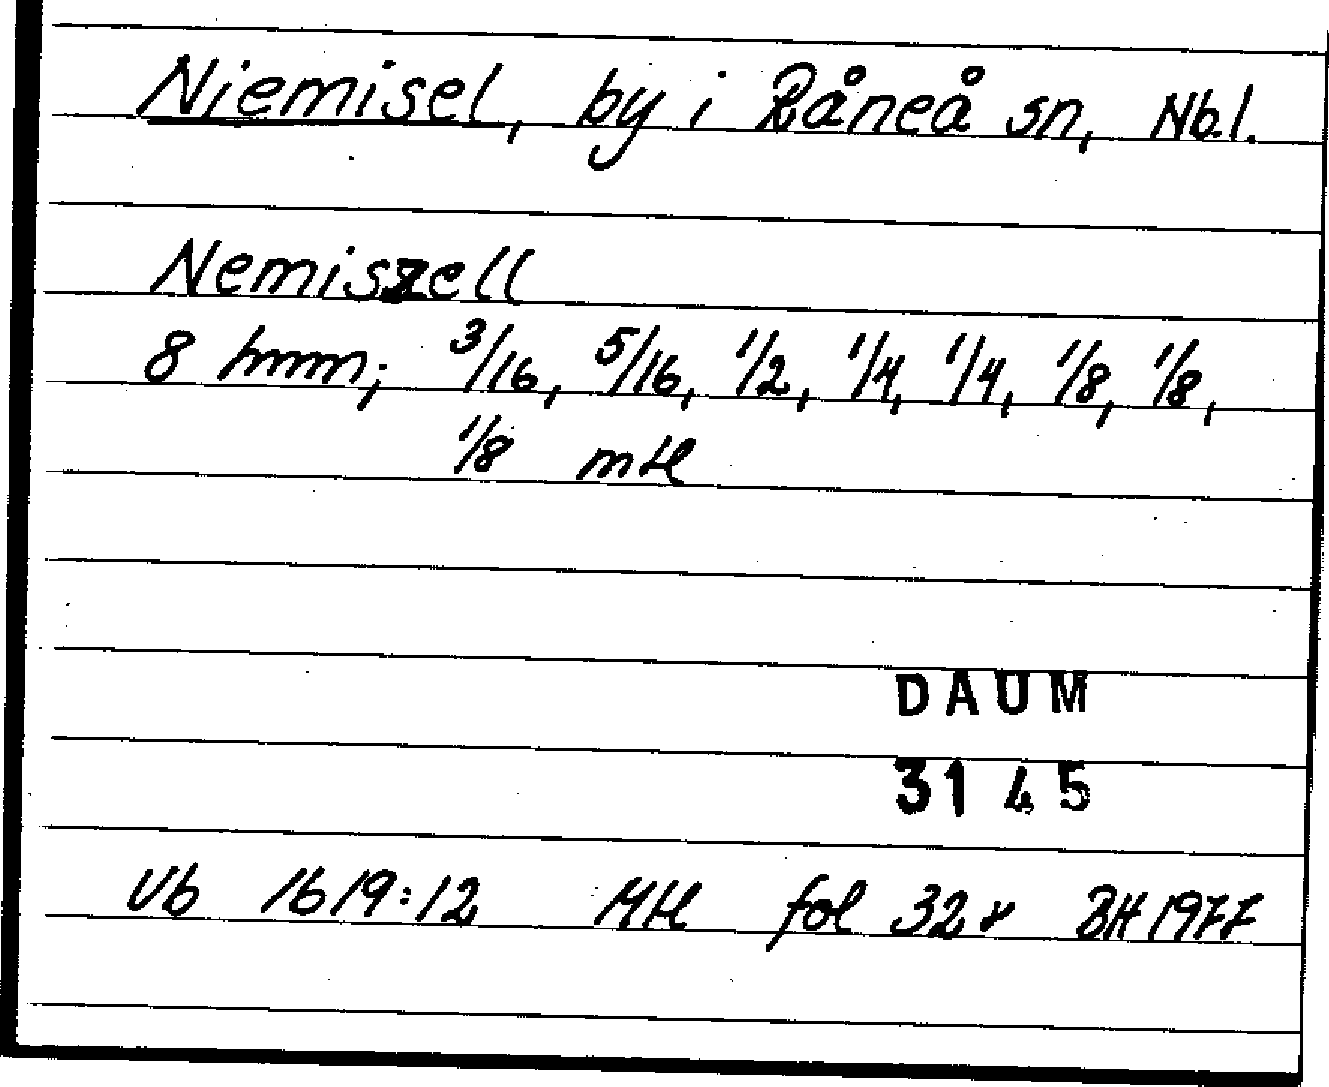 Niemisel, by i Råneå sn, Nb.l.
Nemiszell
8 hmm; 3/16, 5/16, 1/2, 1/4, 1/4, 1/8, 1/8,
1/8 mtl
DAUM
3145
Vb 1619:12 Mtl fol 32v BH 1977